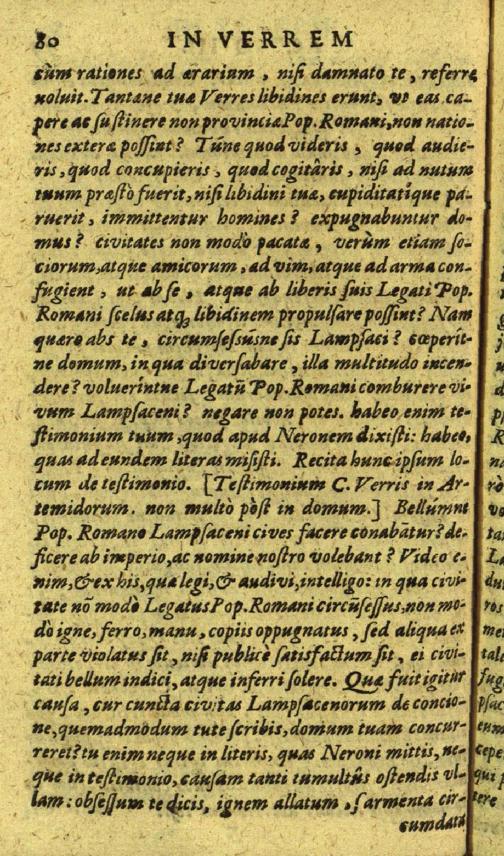 80 IN VERREM
cùm rationes ad ærarium, nisi damnato te, referre
noluit. Tantæne tuæ Verres libidines erunt, vt eas ca-
pere ac sustinere non provinciæ Pop. Romani, non natio-
nes exteræ possint? Túne quod videris, quod audie-
ris, quod concupieris, quod cogitâris, nisi ad nutum
tuum præstò fuerit, nisi libidini tuæ, cupiditatíque pa-
ruerit, immittentur homines? expugnabuntur do-
mus? civitates non modò pacatæ, verùm etiam so-
ciorum, atque amicorum, ad vim, atque ad arma con-
fugient, ut ab se, atque ab liberis suis Legati Pop.
Romani scelus atq; libidinem propulsare possint? Nam
quæro abs te, circumsessúsne sis Lampsaci? cœperít-
ne domum, in qua diversabare, illa multitudo incen-
dere? voluerintne Legatū Pop. Romani comburere vi-
vum Lampsaceni? negare non potes. habeo enim te-
stimonium tuum, quod apud Neronem dixisti: habeo,
quas ad eundem literas misisti. Recita hunc ipsum lo-
cum de testimonio. [Testimonium C. Verris in Ar-
temidorum. non multò pòst in domum.] Bellúmne
Pop. Romano Lampsaceni cives facere conabātur? de-
ficere ab imperio, ac nomine nostro volebant? Video e-
nim, & ex his, quæ legi, & audivi, intelligo: in qua civi-
tate nō modò Legatus Pop. Romani circūsessus, non mo-
dò igne, ferro, manu, copiis oppugnatus, sed aliqua ex
parte violatus sit, nisi publicè satisfactum sit, ei civi-
tati bellum indici, atque inferri solere. Quæ fuit igitur
causa, cur cuncta civitas Lampsacenorum de concio-
ne, quemadmodum tute scribis, domum tuam concur-
reret? tu enim neque in literis, quas Neroni mittis, ne-
que in testimonio, causam tanti tumultûs ostendis vl-
lam: obsessum te dicis, ignem allatum, sarmenta cir-
cumdata